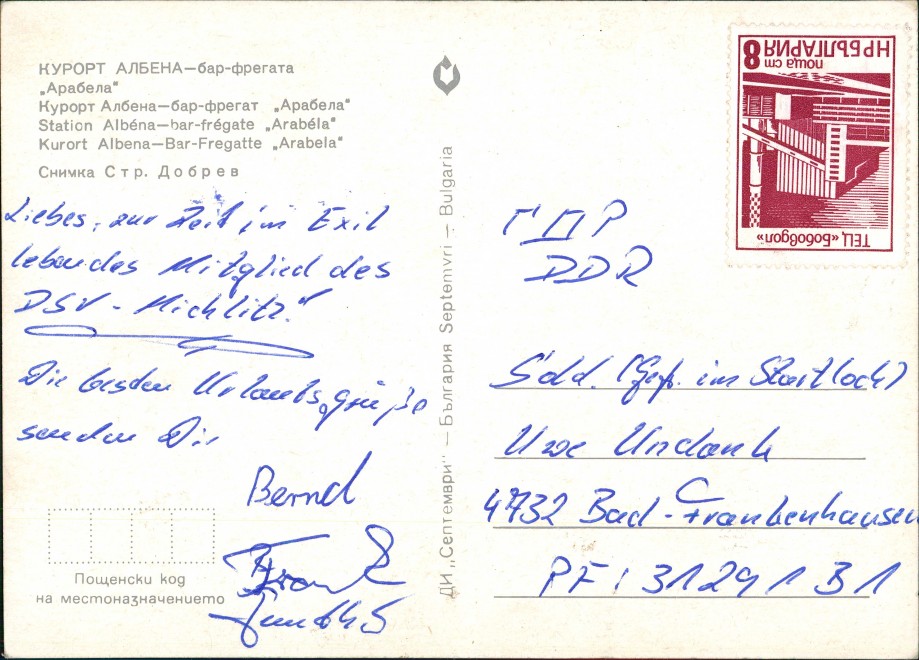 КУРОРТ АЛБЕНА—бар-фрегата
„Арабела“
Курорт Албена—бар-фрегат „Арабела“
Station Albéna—bar-frégate „Arabéla“
Kurort Albena—Bar-Fregatte „Arabela“
Снимка Стр. Добрев
Liebes, zur Zeit im Exil
lebendes Mitglied des
DSV - Michlitz!"
Die besten Urlaubsgrüße
senden Dir
Bernd
Frank
Пощенски код
на местоназначението
ДИ „Септември“ — България Septemvri — Bulgaria
НР БЪЛГАРИЯ
поща ст 8
ТЕЦ «Бобовдол»
ГДР
DDR
Sold. (Gefr. im Startloch)
Uwe Undank
4732 Bad-Frankenhausen
PF: 31291 B1